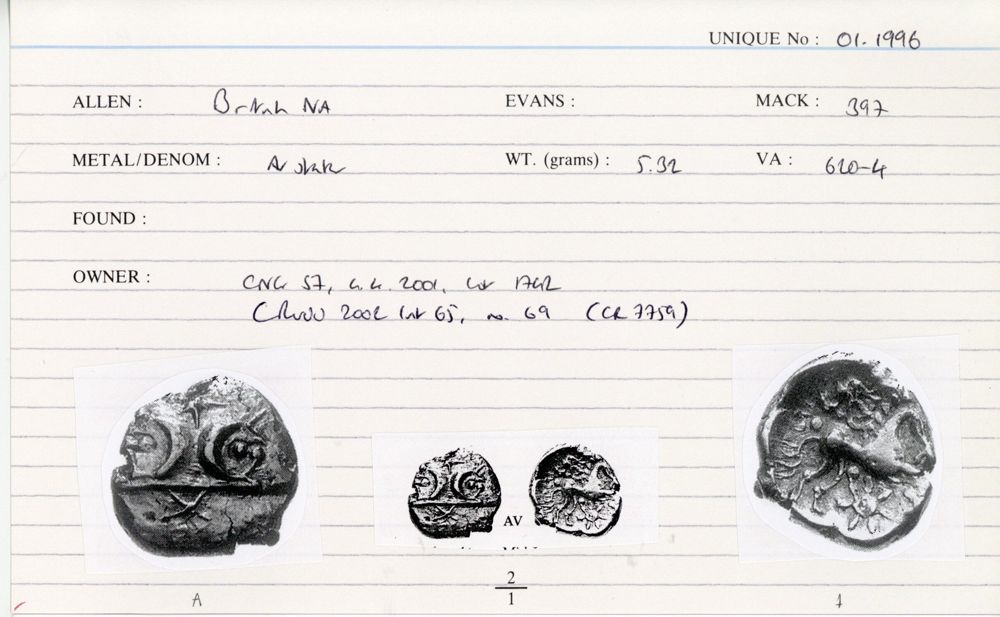 UNIQUE No : 01.1996
ALLEN : British NA EVANS : MACK : 397
METAL/DENOM : AV stater WT. (grams) : 5.32 VA : 620-4
FOUND :
OWNER : CNG 57, 4.4.2001, lot 1742
(Rudd 2002 list 65, no. 69 (CR 7759)
AV
2
1
A 1